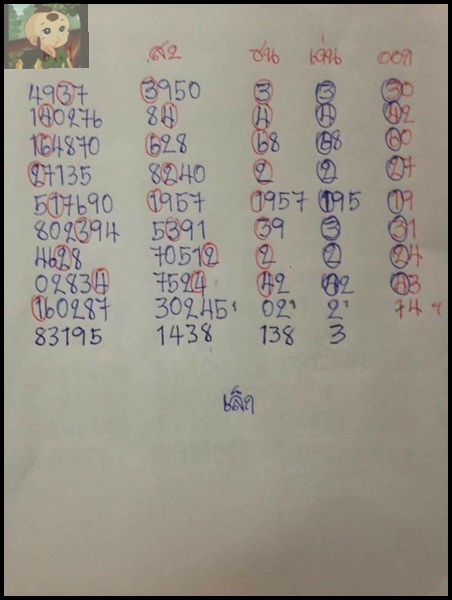 สว ชน เด่น ออก
4937 3950 3 3 30
140276 84 4 4 42
164870 628 68 68 60
27135 8240 2 2 27
517690 1957 1957 195 19
802394 5391 39 3 31
4628 70512 2 2 24
02834 7524 42 42 43
160287 30245 02 2 74
83195 1438 138 3